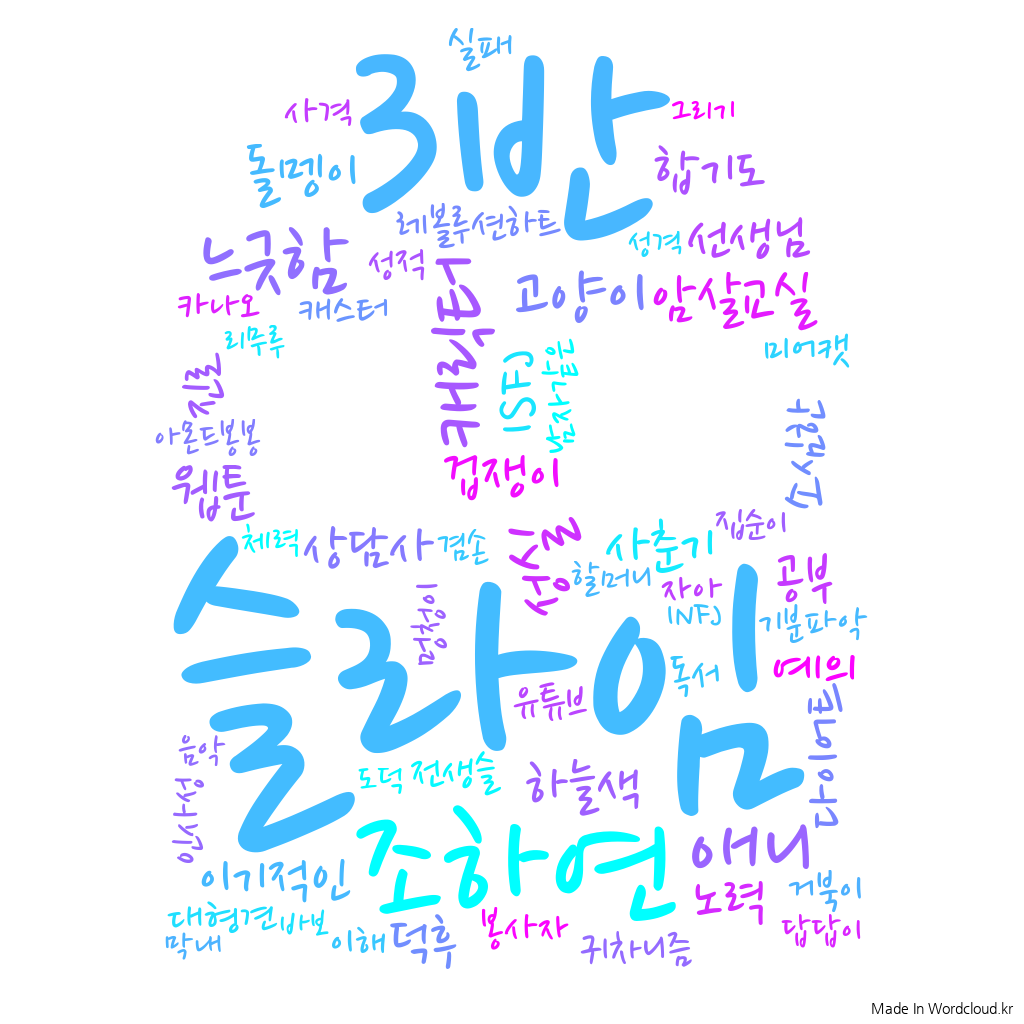 실패
3반
사격
그리기
돌멩이
합기도
레볼루션하트
느긋함
성적
성격
선생님
카나오
캐스터
캐릭터
고양이
암살교실
리무루
미어캣
진로
ISFJ
남자같은
아몬드봉봉
겁쟁이
웹툰
소심함
체력
상담사
겸손
성실
사춘기
집순이
슬라임
멍청이
할머니
자아
INFJ
공부
기분파악
독서
예의
유튜브
음악
인사성
도덕
전생슬
하늘색
이기적인
조하연
애니
노력
거북이
대형견
바보
막내
이해
덕후
봉사자
귀차니즘
답답이
Made In Wordcloud.kr